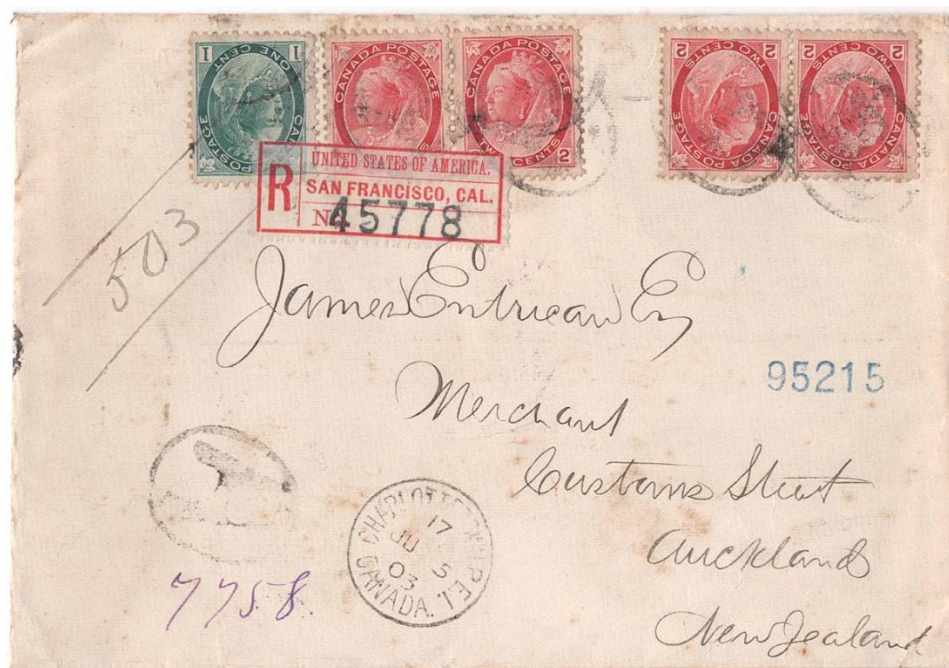 1 ONE CENT 1
POSTAGE
CANADA POSTAGE
CANADA POSTAGE
CENTS 2
2 TWO CENTS 2
CANADA POSTAGE
2 TWO CENTS 2
CANADA POSTAGE
R
UNITED STATES OF AMERICA.
SAN FRANCISCO, CAL.
No 45778
503
James Entrican Esq
95215
Merchant
Customs Street
Auckland
New Zealand
CHARLOTTETOWN P.E.I.
17
JU 5
03
CANADA.
7758